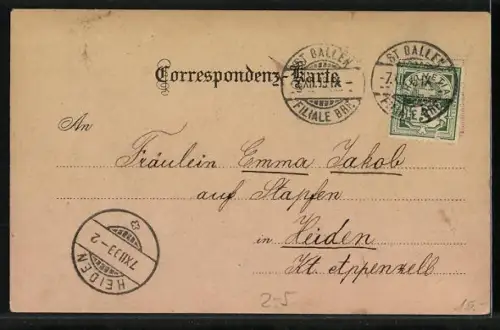 ST GALLEN
FILIALE BRG.
ST GALLEN
FILIALE BRG.
HELVETIA
Correspondenz-Karte
An
Fräulein Emma Jakob
auf Stapfen
in Heiden
Kt. Appenzell
7 XII 03 - 2
HEIDEN
2-5
15.-